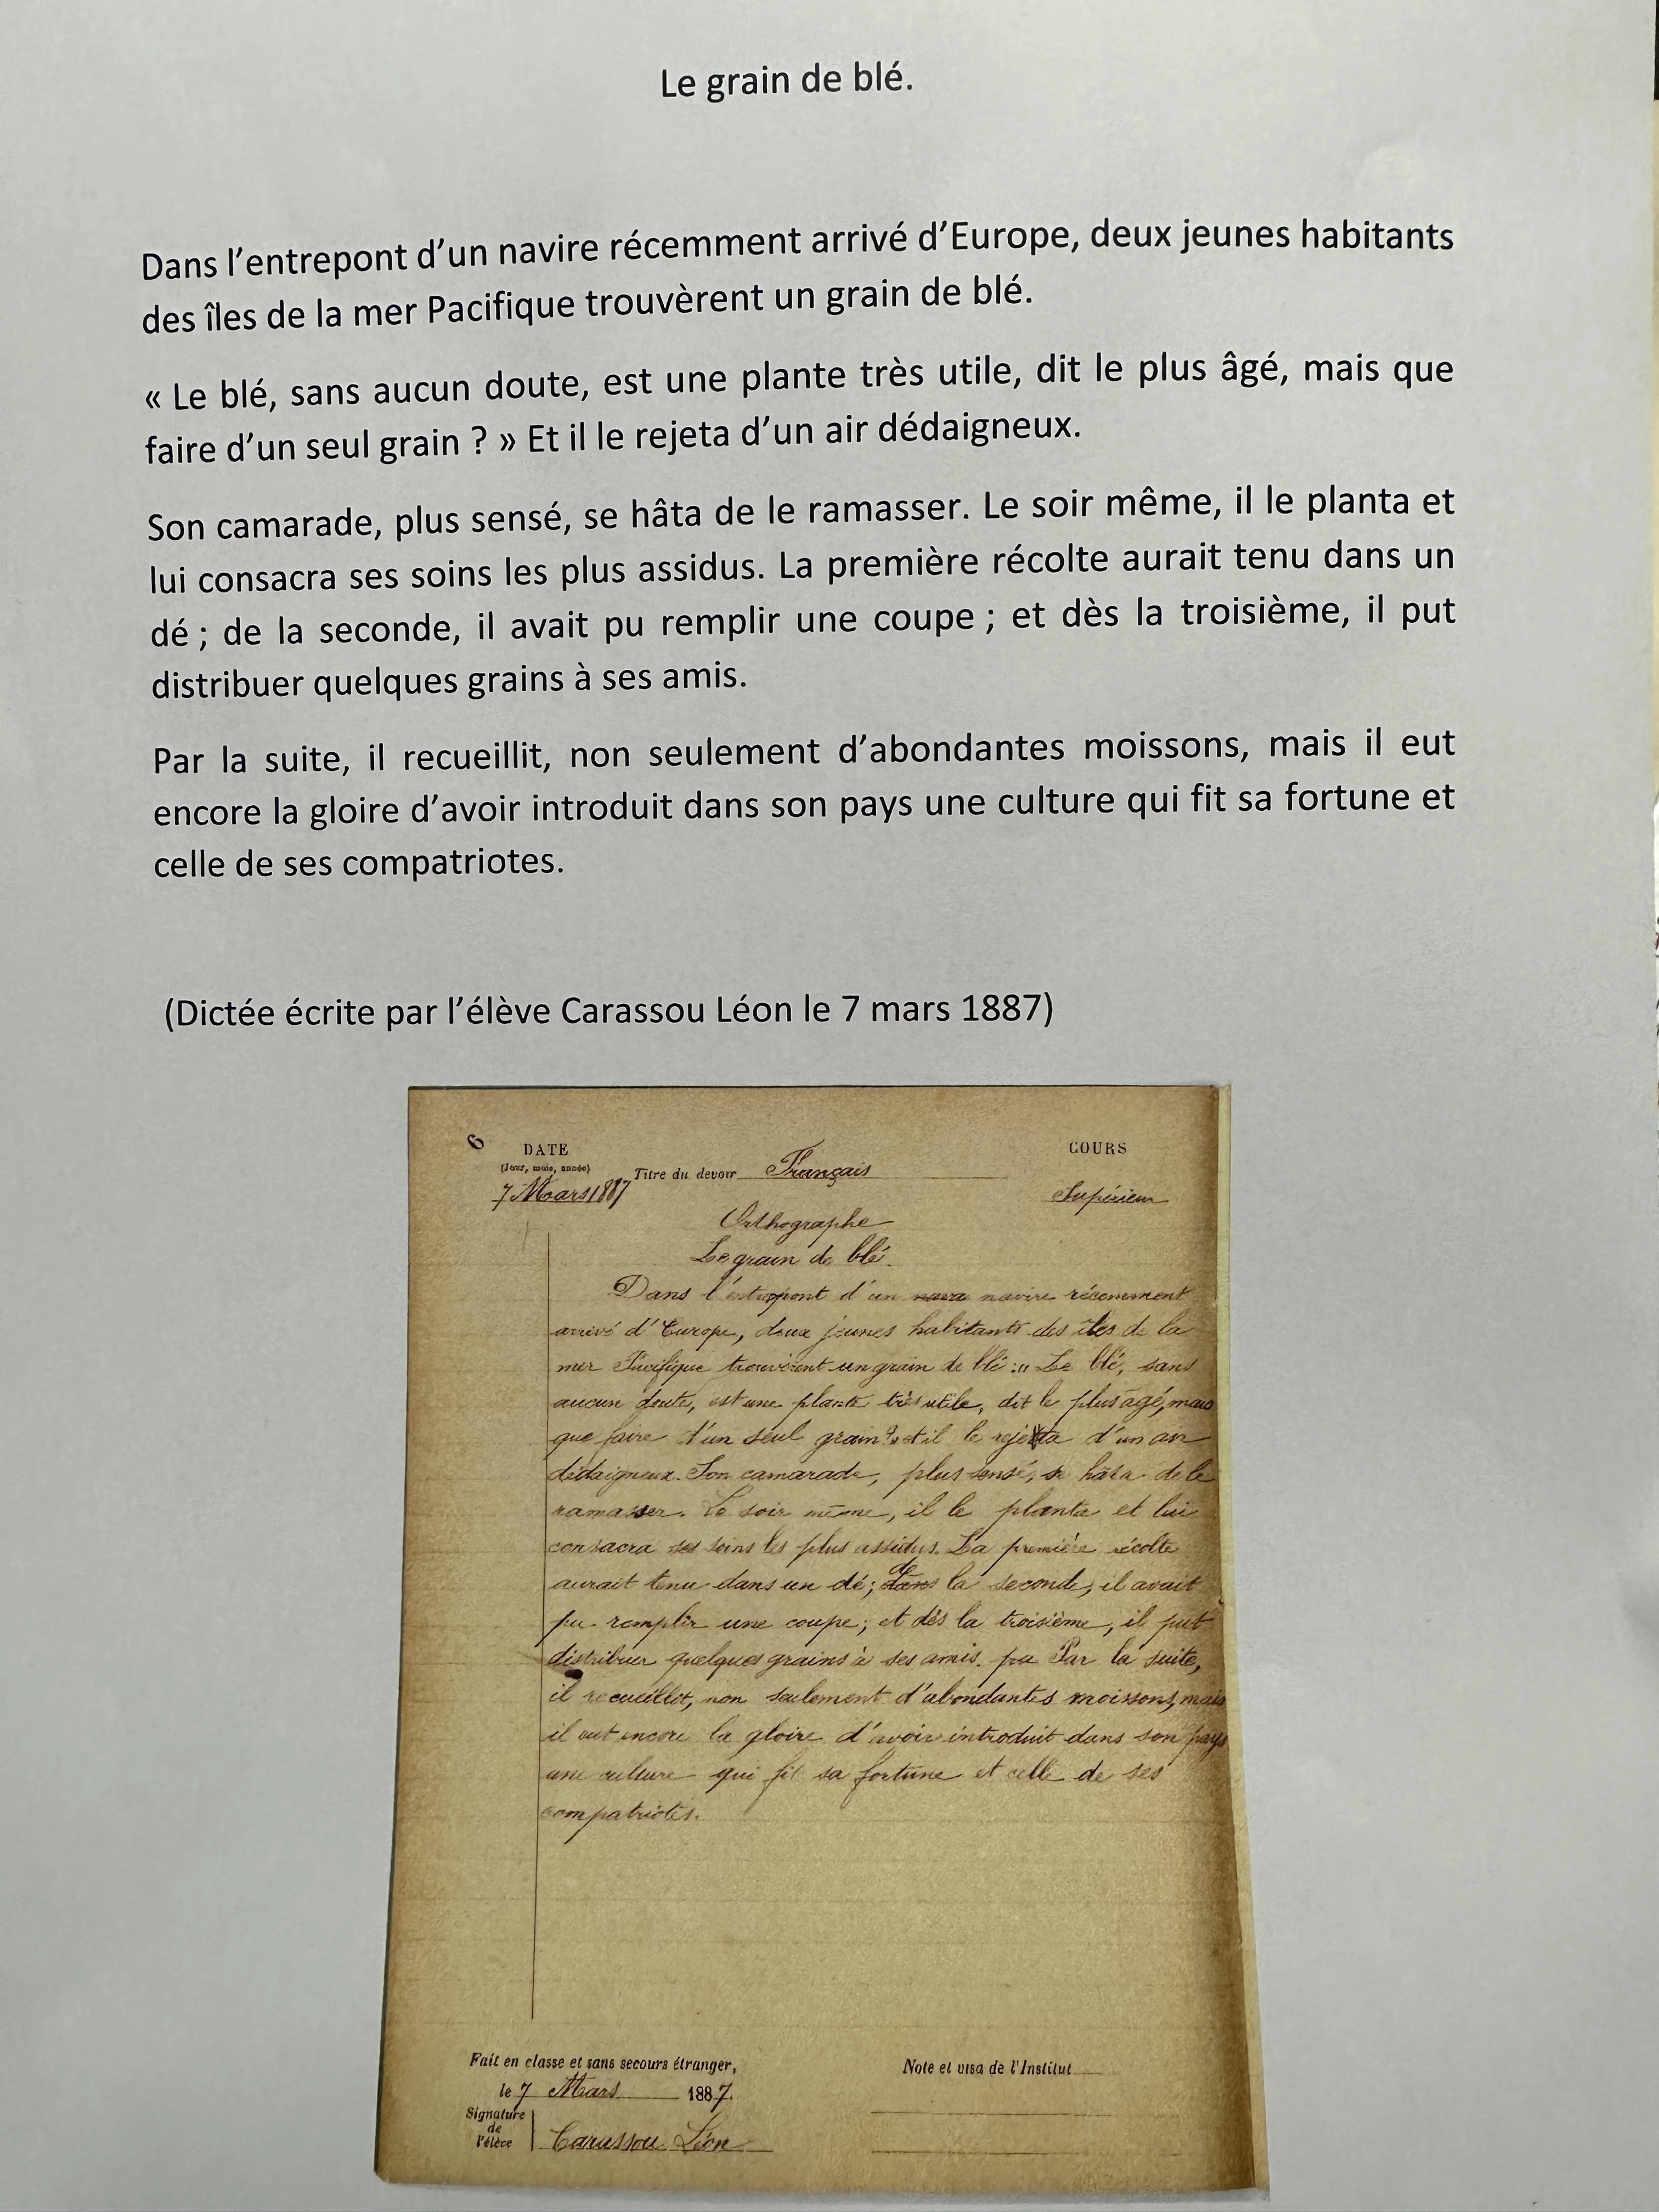 Le grain de blé.
Dans l’entrepont d’un navire récemment arrivé d’Europe, deux jeunes habitants
des îles de la mer Pacifique trouvèrent un grain de blé.
« Le blé, sans aucun doute, est une plante très utile, dit le plus âgé, mais que
faire d’un seul grain ? » Et il le rejeta d’un air dédaigneux.
Son camarade, plus sensé, se hâta de le ramasser. Le soir même, il le planta et
lui consacra ses soins les plus assidus. La première récolte aurait tenu dans un
dé ; de la seconde, il avait pu remplir une coupe ; et dès la troisième, il put
distribuer quelques grains à ses amis.
Par la suite, il recueillit, non seulement d’abondantes moissons, mais il eut
encore la gloire d’avoir introduit dans son pays une culture qui fit sa fortune et
celle de ses compatriotes.
(Dictée écrite par l’élève Carassou Léon le 7 mars 1887)
6
DATE
COURS
(Jour, mois, année)
Titre du devoir Français
7 Mars 1887
Supérieur
Orthographe
Le grain de blé.
Dans l'entrepont d'un nava navire récemment
arrivé d'Europe, deux jeunes habitants des îles de la
mer Pacifique trouvèrent un grain de blé : « Le blé, sans
aucun doute, est une plante très utile, dit le plus âgé, mais
que faire d'un seul grain ? » et il le rejeta d'un air
dédaigneux. Son camarade, plus sensé, se hâta de le
ramasser. Le soir même, il le planta et lui
consacra ses soins les plus assidus. La première récolte
aurait tenu dans un dé ; dans de la seconde, il avait
pu remplir une coupe ; et dès la troisième, il put
distribuer quelques grains à ses amis. pa Par la suite,
il recueillit, non seulement d'abondantes moissons, mais
il eut encore la gloire d'avoir introduit dans son pays
une culture qui fit sa fortune et celle de ses
compatriotes.
Fait en classe et sans secours étranger,
Note et visa de l'Institut
le 7 Mars 1887.
Signature
de
l'élève
Carassou Léon